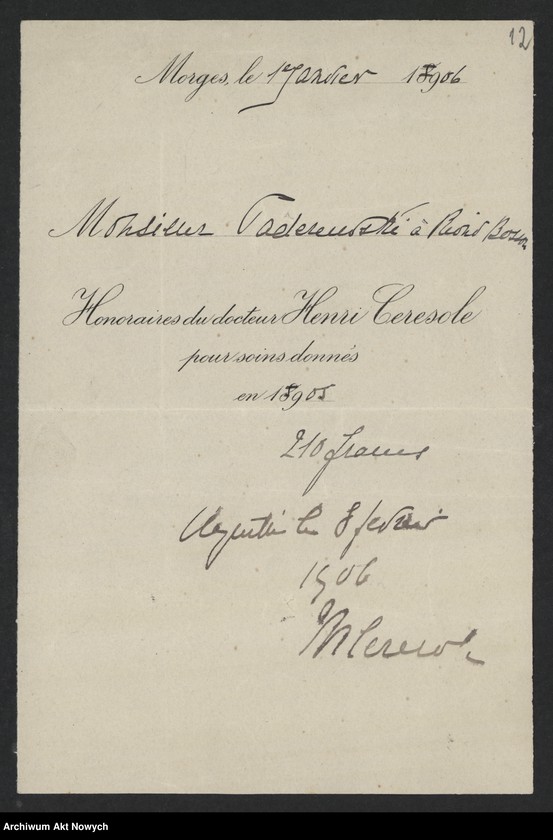 12
Morges, le 1 Janvier 1906
Monsieur Paderewski à Riond Bosson
Honoraires du docteur Henri Ceresole
pour soins donnés
en 1905
210 francs
Acquitté le 8 fevrier
1906
H Ceresole
Archiwum Akt Nowych